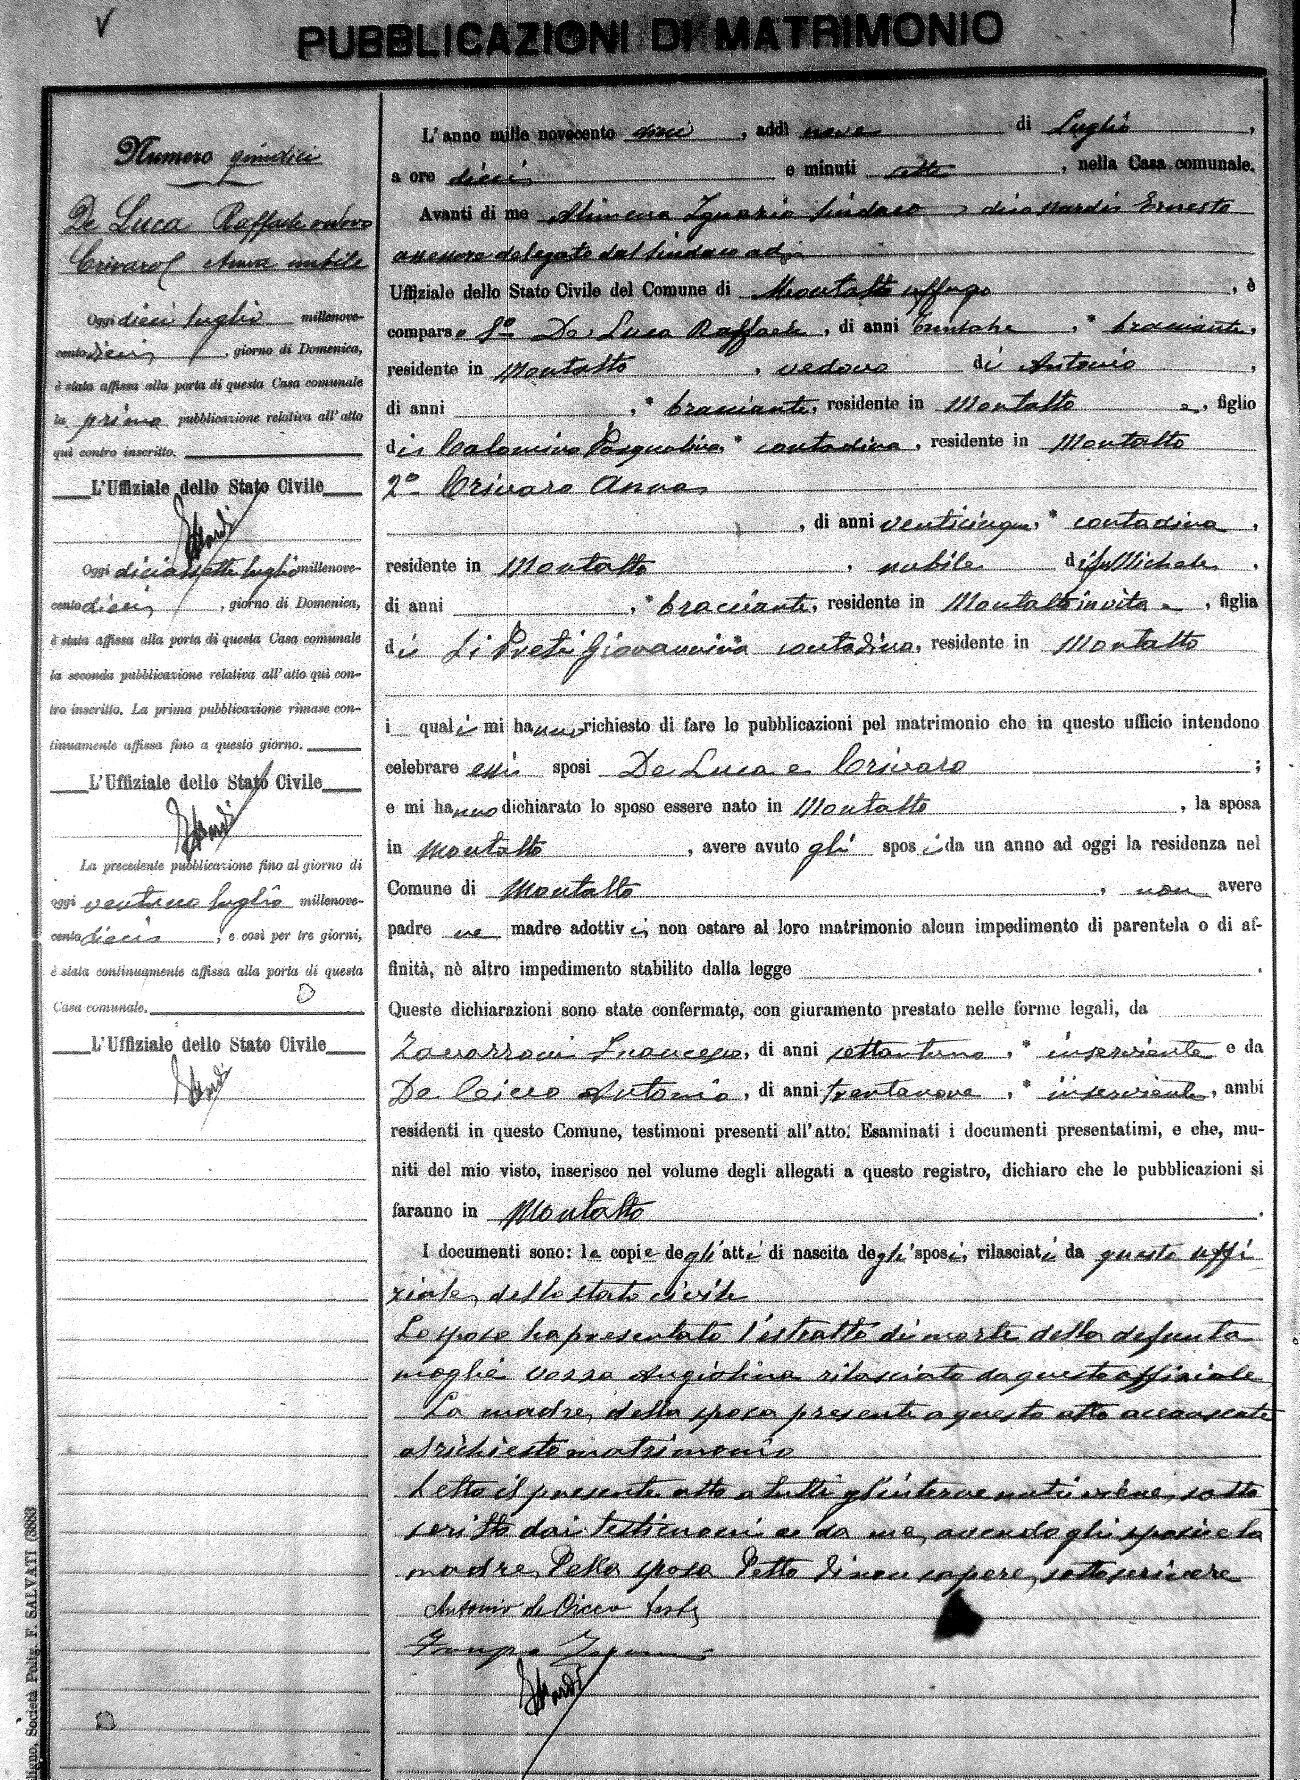 PUBBLICAZIONI DI MATRIMONIO
Numero quindici
De Luca Raffaele vedovo
Crivaro Anna nubile
Oggi dieci luglio millenove-
cento dieci, giorno di Domenica,
è stata affissa alla porta di questa Casa comunale
la prima pubblicazione relativa all'atto
quì contro inscritto.
L'Uffiziale dello Stato Civile
Oggi diciassette luglio millenove-
cento dieci, giorno di Domenica,
è stata affissa alla porta di questa Casa comunale
la seconda pubblicazione relativa all'atto quì con-
tro inscritto. La prima pubblicazione rimase con-
tinuamente affissa fino a questo giorno.
L'Uffiziale dello Stato Civile
La precedente pubblicazione fino al giorno di
oggi ventuno luglio millenove-
cento dieci, e così per tre giorni,
è stata continuamente affissa alla porta di questa
Casa comunale.
L'Uffiziale dello Stato Civile
L'anno mille novecento dieci, addì nove di Luglio,
a ore dieci e minuti sette, nella Casa comunale.
Avanti di me Alimena Ignazio Sindaco Ernesto
assessore delegato dal Sindaco
Uffiziale dello Stato Civile del Comune di Montalto Uffugo, è
comparso 1º De Luca Raffaele, di anni trentatre, * bracciante,
residente in Montalto, vedovo di Antonio,
di anni , * bracciante, residente in Montalto e, figlio
di Calomino Pasqualina, * contadina, residente in Montalto
2º Crivaro Anna
, di anni venticinque, * contadina,
residente in Montalto, nubile di fu Michele,
di anni , * bracciante, residente in Montalto in vita e, figlia
di Li Preti Giovannina * contadina, residente in Montalto
i quali mi hanno richiesto di fare le pubblicazioni pel matrimonio che in questo ufficio intendono
celebrare essi sposi De Luca e Crivaro ;
e mi hanno dichiarato lo sposo essere nato in Montalto, la sposa
in Montalto, avere avuto gli sposi da un anno ad oggi la residenza nel
Comune di Montalto, non avere
padre ne madre adottivi, non ostare al loro matrimonio alcun impedimento di parentela o di af-
finità, nè altro impedimento stabilito dalla legge .
Queste dichiarazioni sono state confermate, con giuramento prestato nelle forme legali, da
Zavarroni Francesco, di anni settantuno, * inserviente e da
De Cicco Antonio, di anni trentanove, * inserviente, ambi
residenti in questo Comune, testimoni presenti all'atto. Esaminati i documenti presentatimi, e che, mu-
niti del mio visto, inserisco nel volume degli allegati a questo registro, dichiaro che le pubblicazioni si
faranno in Montalto .
I documenti sono: le copie degli atti di nascita degli sposi, rilasciati da questo uffi
ziale dello stato civile
Lo sposo ha presentato l'estratto di morte della defunta
moglie Angiolina rilasciato da questo uffiziale
La madre della sposa presente a questo atto acconsente
al richiesto matrimonio
Letto il presente atto a tutti gl'intervenuti viene sotto
scritto dai testimoni e da me, avendo gli sposi e la
madre della sposa detto di non sapere sottoscrivere
Antonio de Cicco teste
ligno, Società Polig. F. SALVATI